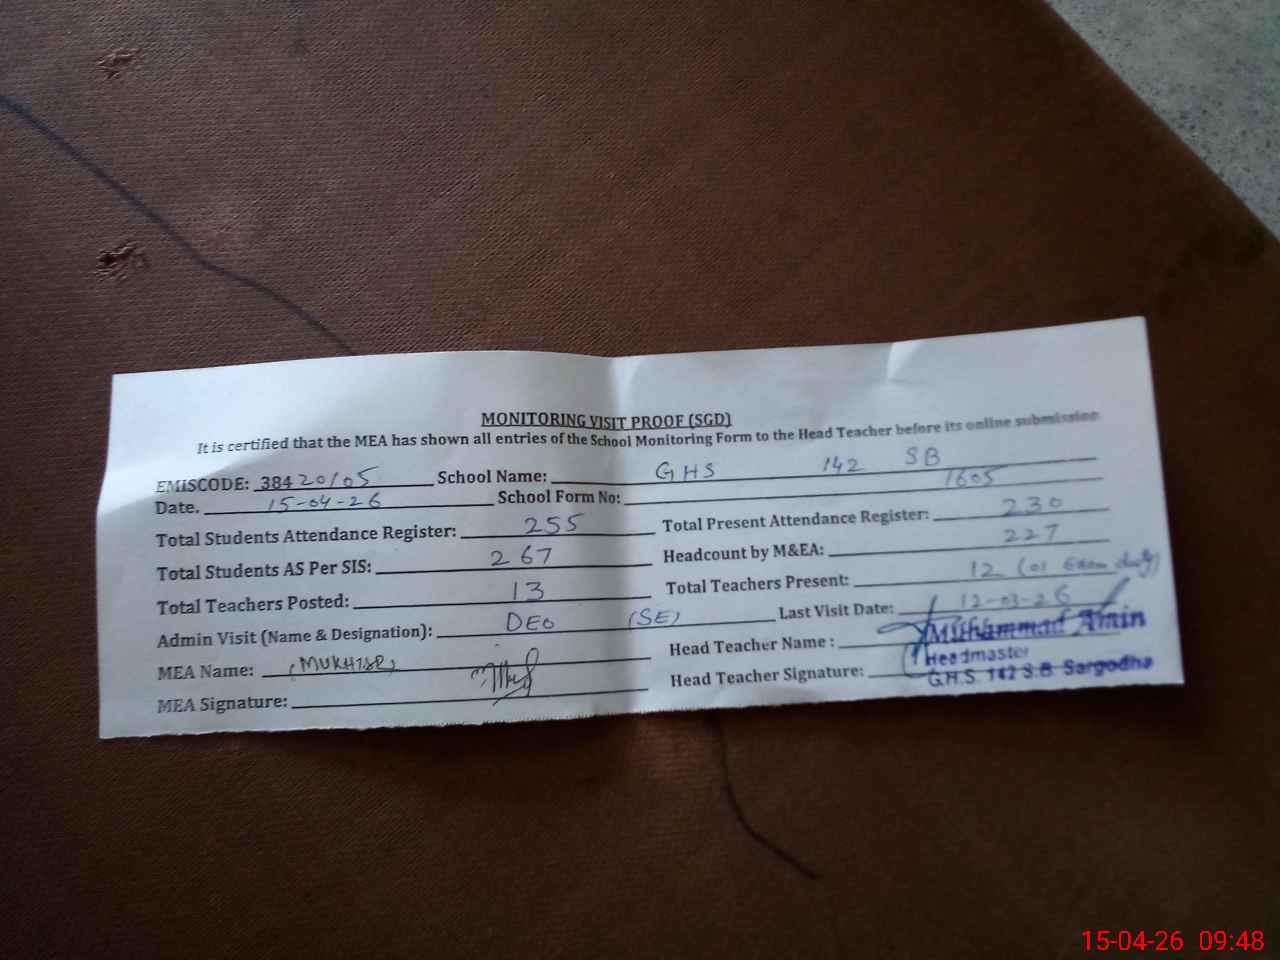 MONITORING VISIT PROOF (SGD)
It is certified that the MEA has shown all entries of the School Monitoring Form to the Head Teacher before its online submission
EMISCODE: 38420105 School Name: GHS 142 SB
Date. 15-04-26 School Form No: 1605
Total Students Attendance Register: 255 Total Present Attendance Register: 230
Total Students AS Per SIS: 267 Headcount by M&EA: 227
Total Teachers Posted: 13 Total Teachers Present: 12 (01 Exam duty)
Admin Visit (Name & Designation): DEO (SE) Last Visit Date: 12-03-26
MEA Name: (MUKHTAR) Head Teacher Name : Muhammad Amin
Headmaster
MEA Signature: Head Teacher Signature: G.H.S. 142 S.B. Sargodha
15-04-26 09:48